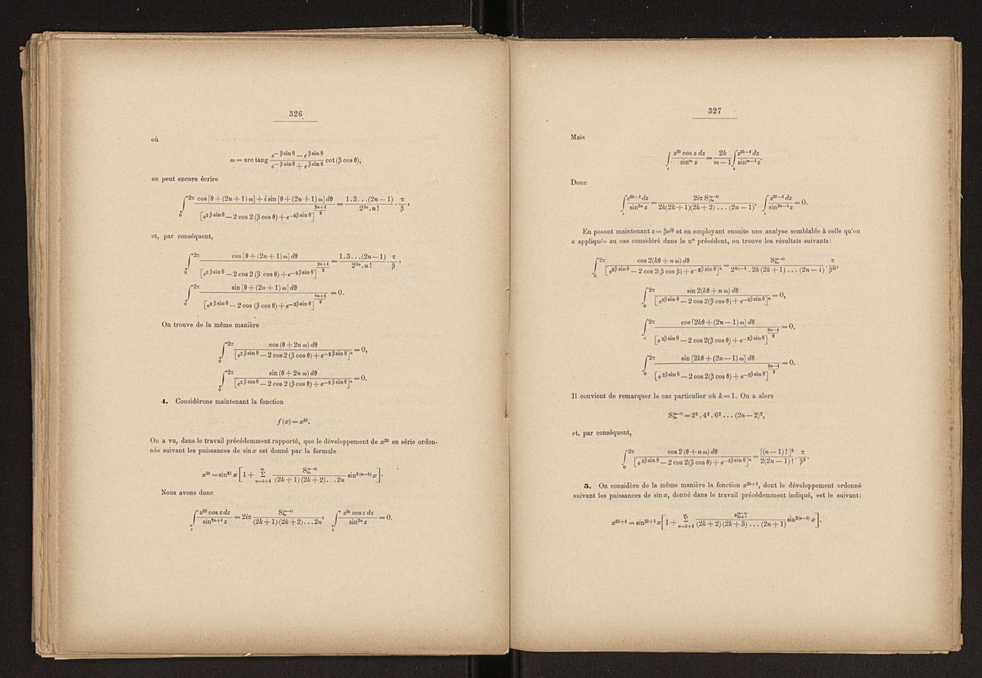 326
où
ω = arc tang (e^{−β sin θ} − e^{β sin θ}) / (e^{−β sin θ} + e^{β sin θ}) cot (β cos θ),
on peut encore écrire
∫_0^{2π} (cos [θ + (2n + 1) ω] + i sin [θ + (2n + 1) ω] dθ) / [e^{2β sin θ} − 2 cos 2 (β cos θ) + e^{−2β sin θ}]^{(2n+1)/2} = (1.3...(2n − 1)) / (2^{2n}. n!) · π/β,
et, par conséquent,
∫_0^{2π} (cos [θ + (2n + 1) ω] dθ) / [e^{2β sin θ} − 2 cos 2 (β cos θ) + e^{−2β sin θ}]^{(2n+1)/2} = (1.3...(2n − 1)) / (2^{2n}. n!) · π/β,
∫_0^{2π} (sin [θ + (2n + 1) ω] dθ) / [e^{2β sin θ} − 2 cos (β cos θ) + e^{−2β sin θ}]^{(2n+1)/2} = 0.
On trouve de la même manière
∫_0^{2π} (cos (θ + 2n ω) dθ) / [e^{2β sin θ} − 2 cos 2 (β cos θ) + e^{−2β sin θ}]^n = 0,
∫_0^{2π} (sin (θ + 2n ω) dθ) / [e^{2β sin θ} − 2 cos 2 (β cos θ) + e^{−2β sin θ}]^n = 0.
4. Considérons maintenant la fonction
f (x) = x^{2k}.
On a vu, dans le travail précédemment rapporté, que le développement de x^{2k} en série ordon-
née suivant les puissances de sin x est donné par la formule
x^{2k} = sin^{2k} x [1 + Σ_{n=k+1}^{∞} / ((2k + 1) (2k + 2)...2n) sin^{2(n−k)} x].
Nous avons donc
∫ (z^{2k} cos z dz) / (sin^{2n+1} z) = 2iπ / ((2k + 1) (2k + 2)...2n), ∫ (z^{2k} cos z dz) / (sin^{2n} z) = 0.
327
Mais
∫ (z^{2k} cos z dz) / (sin^m z) = 2k/(m − 1) ∫ (z^{2k−1} dz) / (sin^{m−1} z).
Donc
∫ (z^{2k−1} dz) / (sin^{2n} z) = 2iπ / (2k(2k + 1)(2k + 2)...(2n − 1)), ∫ (z^{2k−1} dz) / (sin^{2n−1} z) = 0.
En posant maintenant z = βe^{iθ} et en employant ensuite une analyse semblable à celle qu'on
a appliquée au cas considéré dans le n° précédent, on trouve les résultats suivants:
∫_0^{2π} (cos 2(kθ + n ω) dθ) / [e^{2β sin θ} − 2 cos 2(β cos β) + e^{−2β sin θ}]^n = / (2^{2n−1}. 2k (2k + 1)...(2n − 1)) · π/β^{2k},
∫_0^{2π} (sin 2(kθ + n ω) dθ) / [e^{2β sin θ} − 2 cos 2(β cos θ) + e^{−2β sin θ}]^n = 0,
∫_0^{2π} (cos [2kθ + (2n − 1) ω] dθ) / [e^{2β sin θ} − 2 cos 2(β cos θ) + e^{−2β sin θ}]^{(2n−1)/2} = 0,
∫_0^{2π} (sin [2kθ + (2n − 1) ω] dθ) / [e^{2β sin θ} − 2 cos 2(β cos θ) + e^{−2β sin θ}]^{(2n−1)/2} = 0.
Il convient de remarquer le cas particulier où k = 1. On a alors
= 2². 4². 6²...(2n − 2)²,
et, par conséquent,
∫_0^{2π} (cos 2 (θ + n ω) dθ) / [e^{2β sin θ} − 2 cos 2(β cos θ) + e^{−2β sin θ}]^n = [(n − 1)!]² / (2(2n − 1)!) · π/β².
5. On considère de la même manière la fonction x^{2k+1}, dont le développement ordonné
suivant les puissances de sin x, donné dans le travail précédemment indiqué, est le suivant:
x^{2k+1} = sin^{2k+1} x [1 + Σ_{n=k+1}^{∞} / ((2k + 2) (2k + 3)...(2n + 1)) sin^{2(n−k)} x].